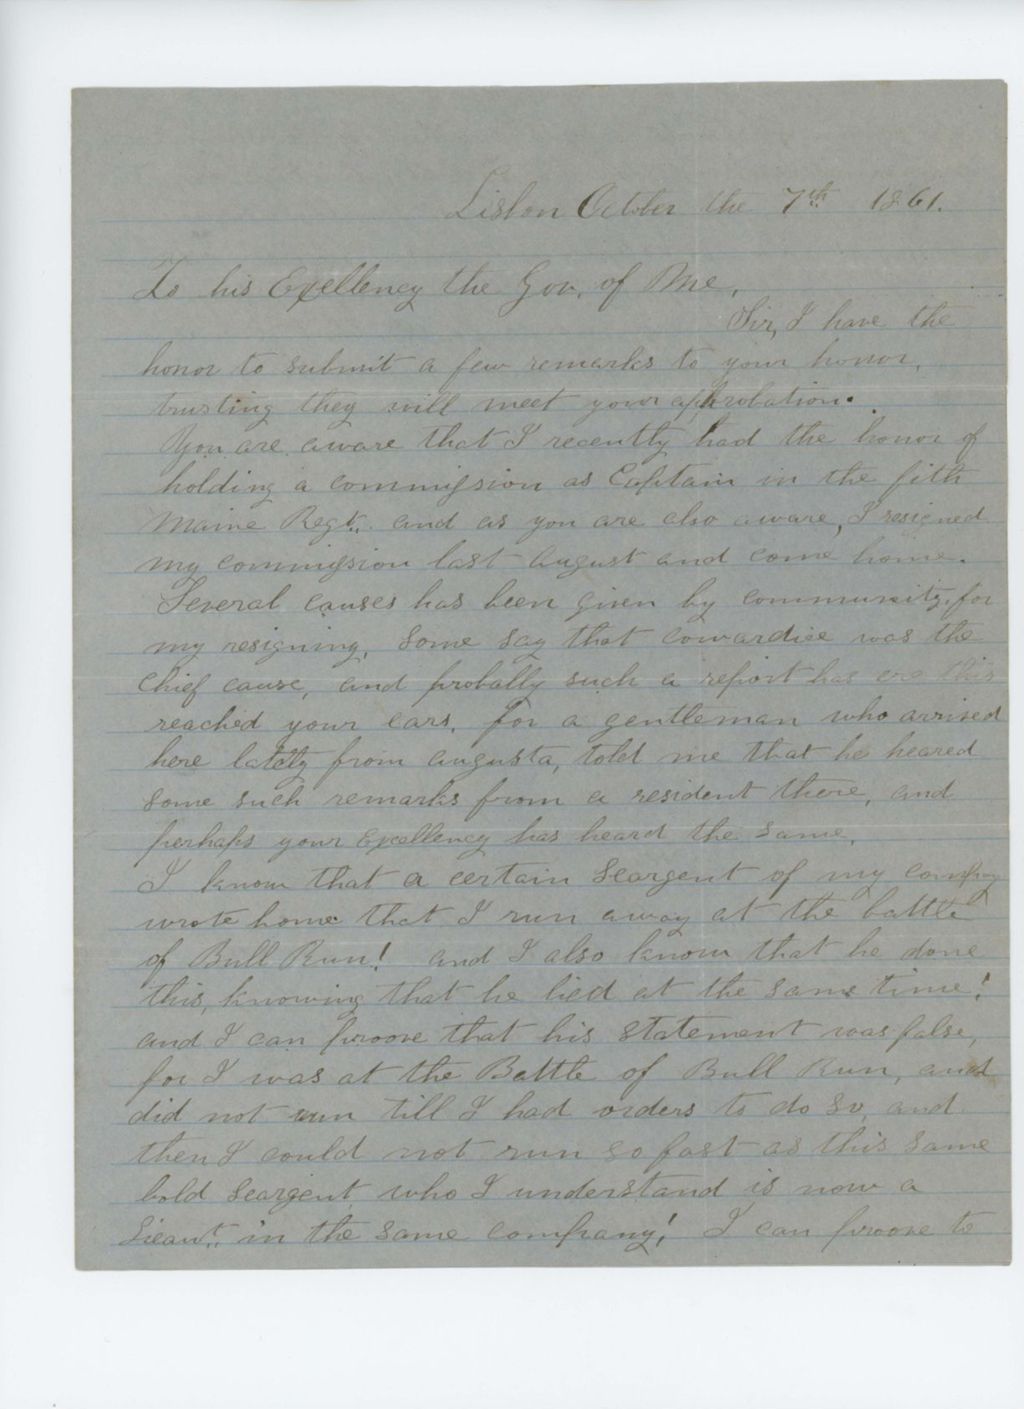 Lisbon October the 7th 1861.
To his Exellency the Gov. of Me,
Sir, I have the
honor to submit a few remarks to your honor,
trusting they will meet your approbation.
You are aware that I recently had the honor of
holding a commission as Captain in the fith
Maine Regt. and as you are also aware, I resigned
my commission last august and come home.
Several causes has been given by community, for
my resigning, some say that cowardice was the
chief cause, and probally such a report has ere this
reached your ears, for a gentleman who arrived
here lately from augusta, told me that he heared
some such remarks from a resident there, and
perhaps your Excellency has heard the same.
I know that a certain Seargent of my company
wrote home that I run away at the battle
of Bull Run! and I also know that he done
this, knowing that he lied at the same time!
and I can proove that his statement was false,
for I was at the Battle of Bull Run, and
did not run till I had orders to do so, and
then I could not run so fast as this same
bold Seargent who I understand is now a
Lieaut. in the same company! I can proove to